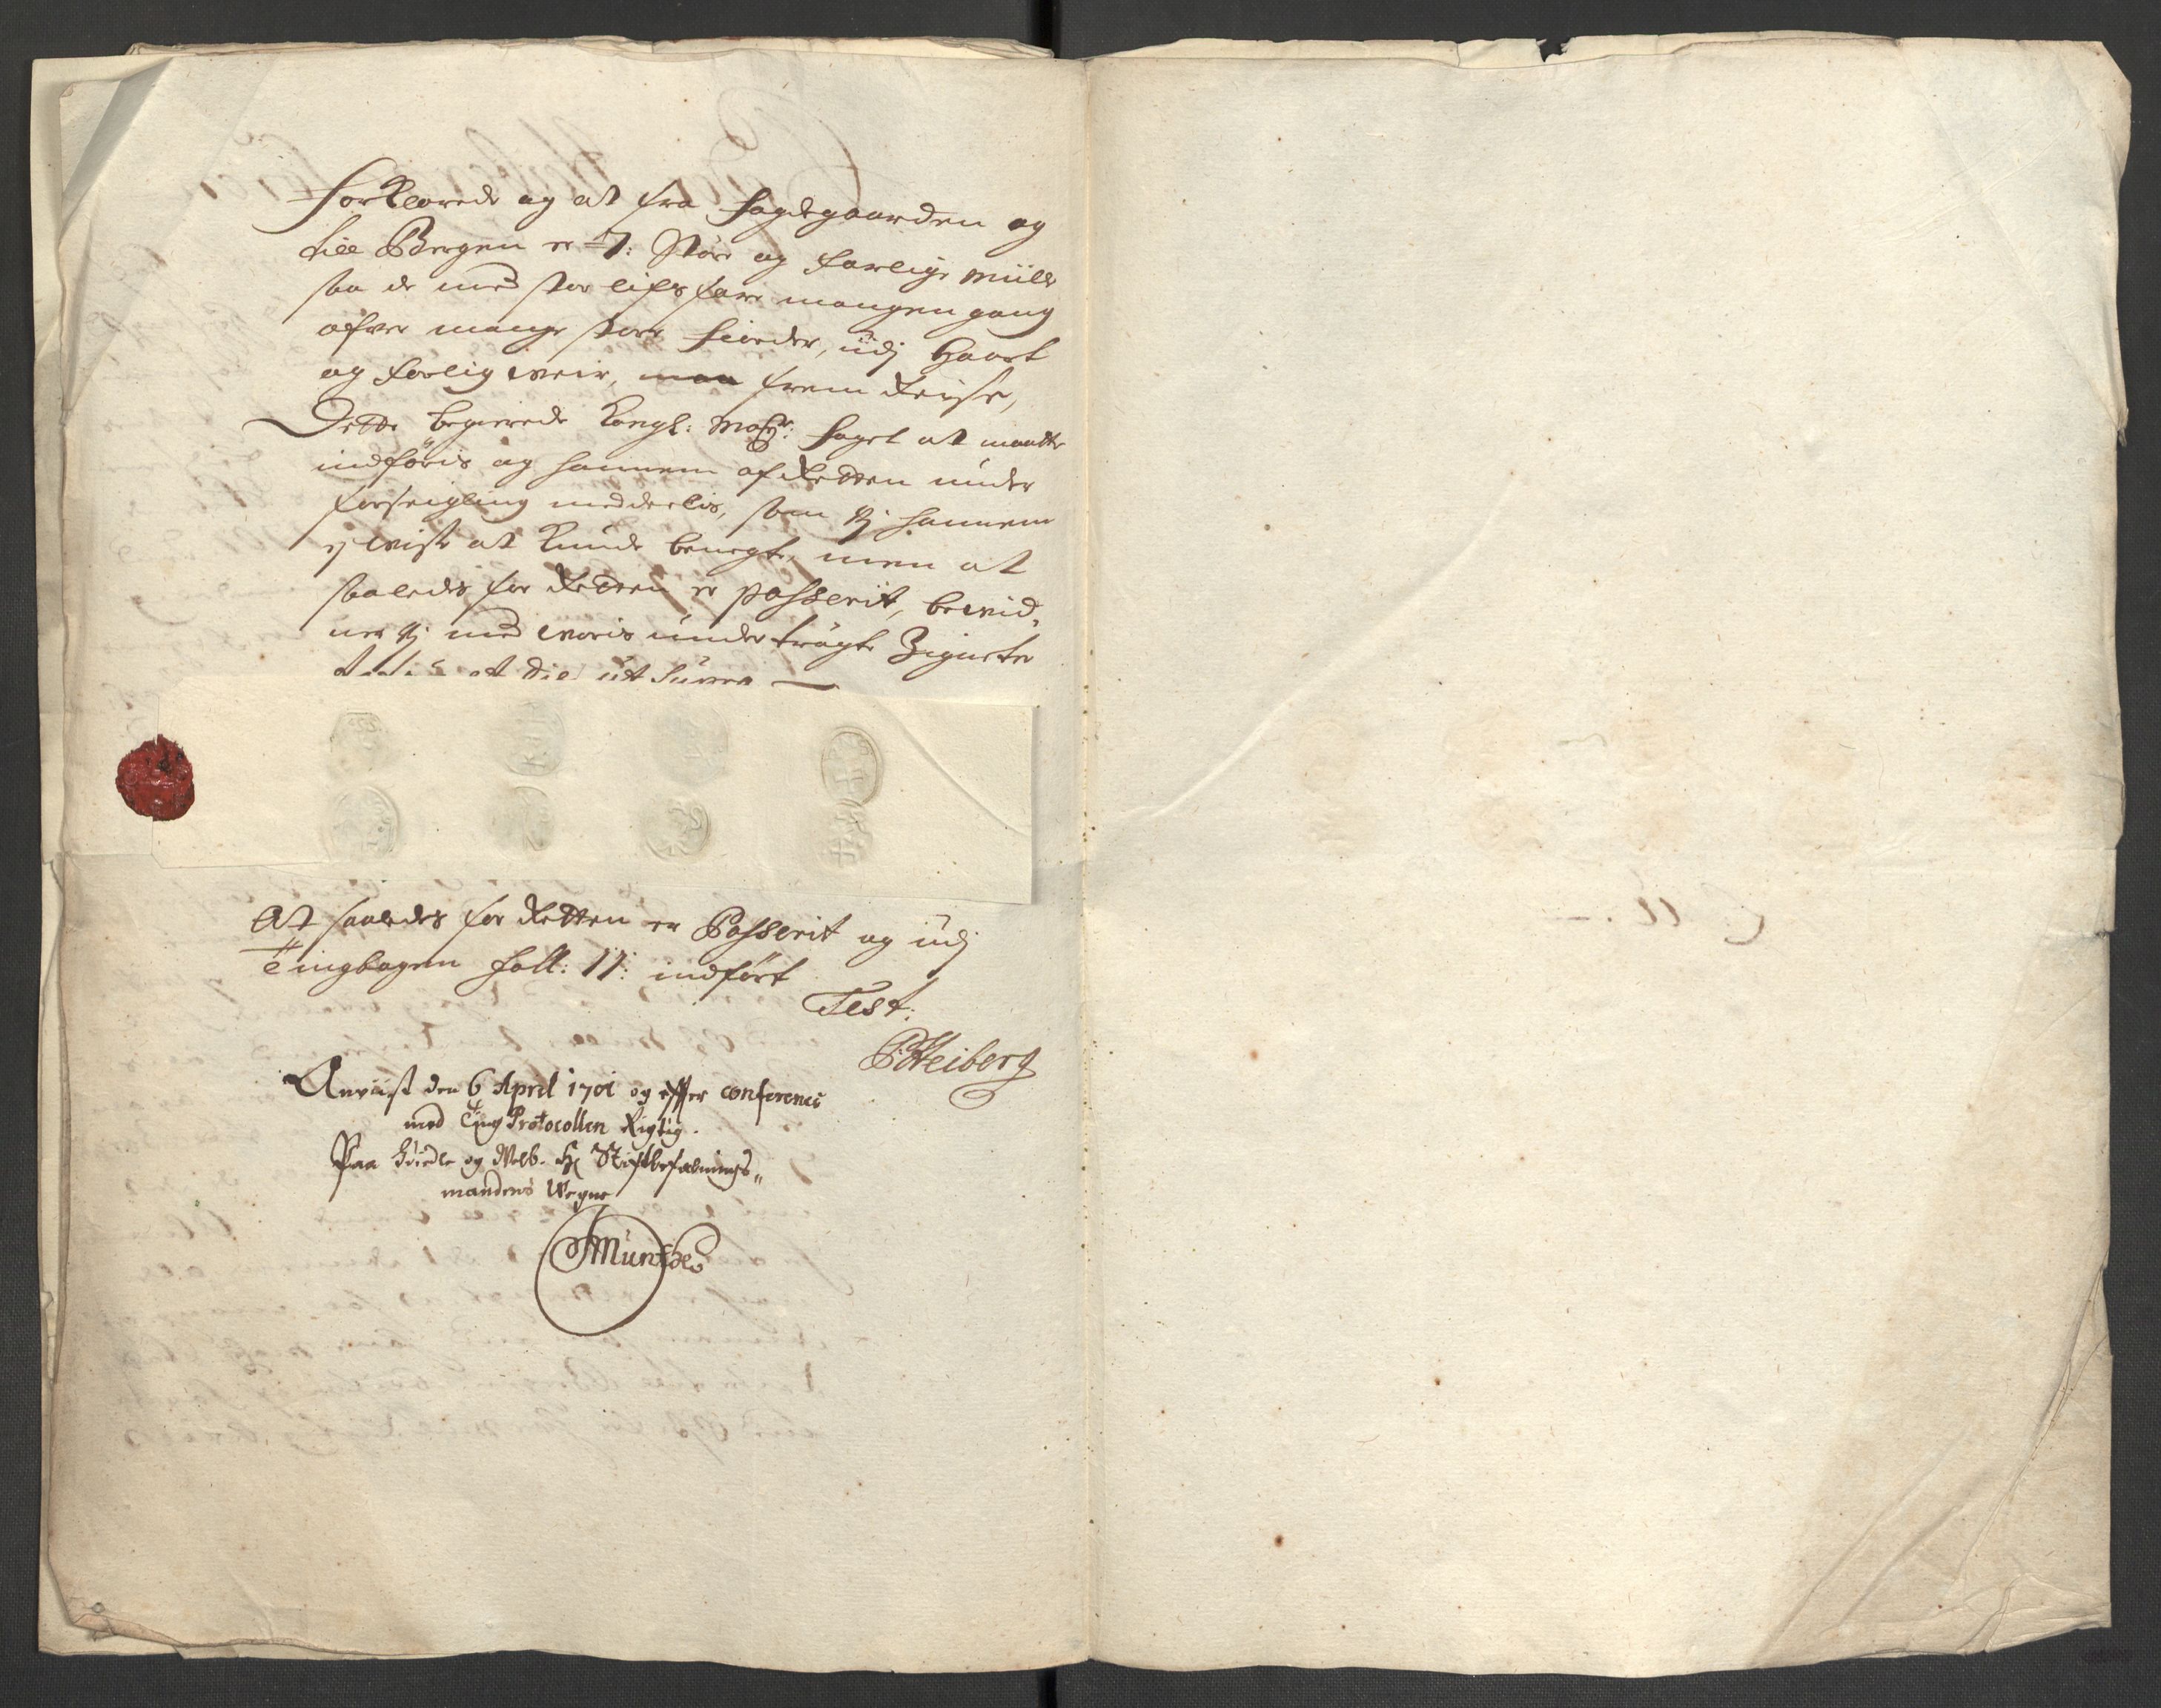 forklarede og at fra fogdgaarden og
till Bergen er 17: store og farlige miile
saa de med stor lifs fare mangen gang
ofver mange store fiorder, udj Haart
og farlig weir, maa frem Reise,
Dette begierede Kongl: May: foget at maatte
indføris og hannem af Retten under
forseigling meddeelis, som vj hannem
ej wiste at kunde benegte, men at
saaledes for Retten er passerit, bewid,
ner vj med woris undertrøgte Zignete
Actum et die ut supra
At saaledes for Retten er Passerit og udj
Tingbogen foll: 11: indført
Test:
PHeiberg
Anviist den 6 April 1701 og effter conference
med Ting Protocollen Rigtig.
Paa Høiedle og Velb. Hr Stiftbefalnings„
mandens Wegne
JMünthe